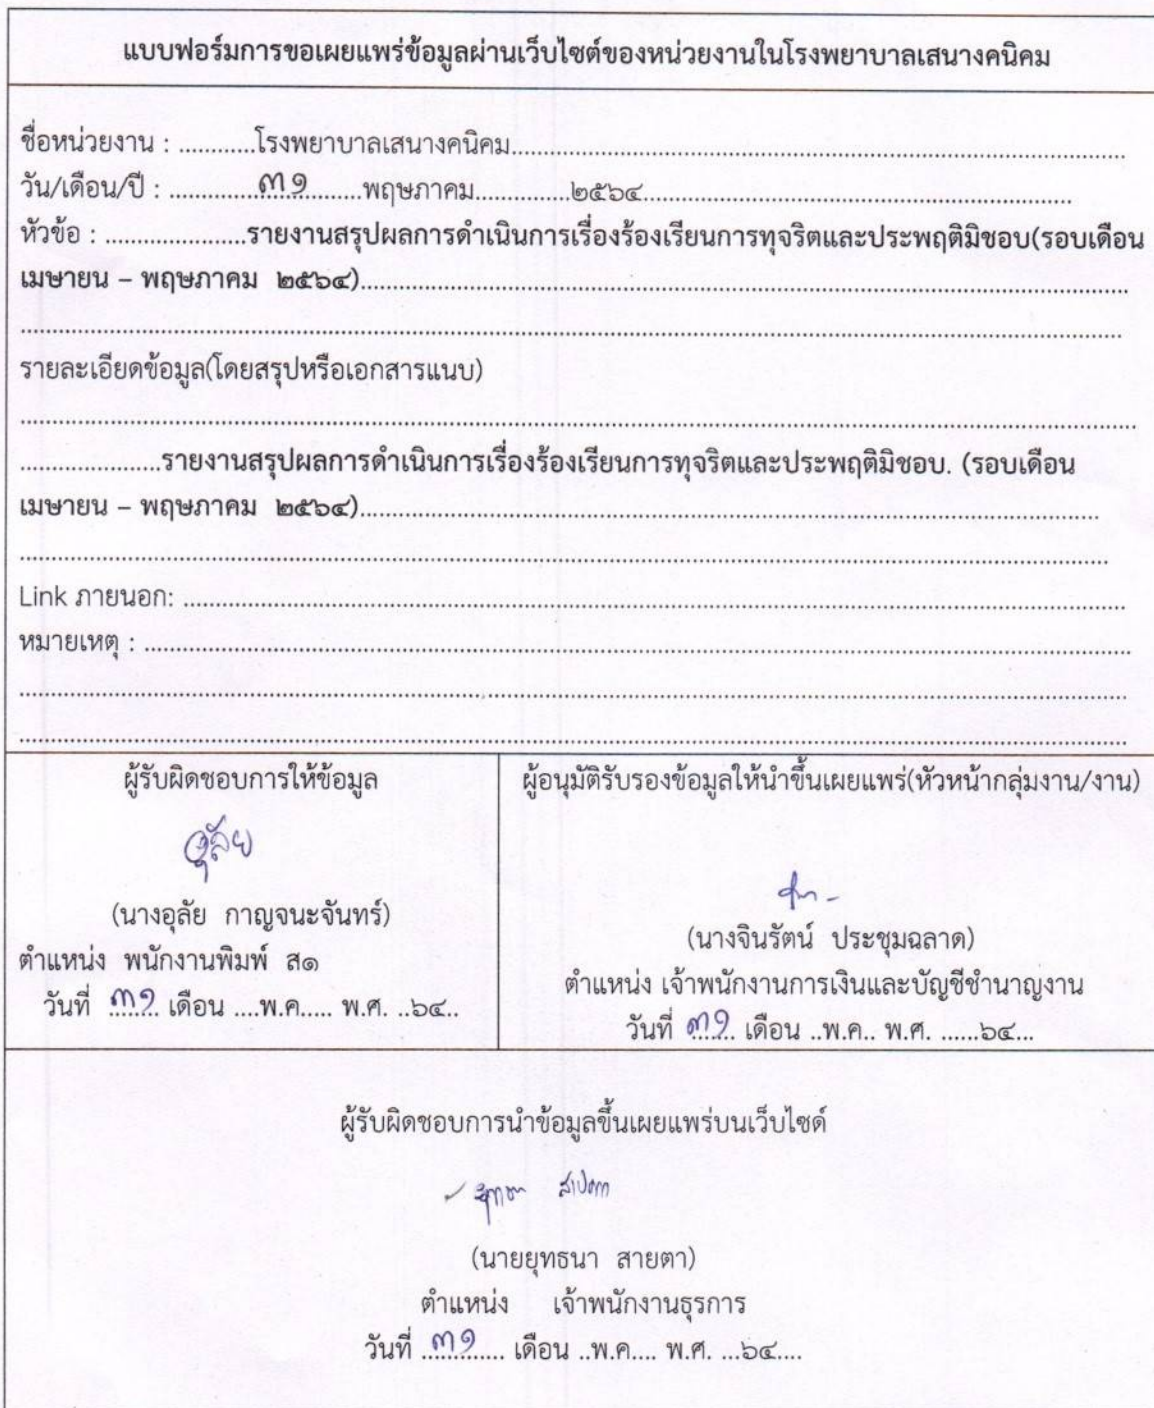 แบบฟอร์มการขอเผยแพร่ข้อมูลผ่านเว็บไซต์ของหน่วยงานในโรงพยาบาลเสนางคนิคม
ชื่อหน่วยงาน : ............โรงพยาบาลเสนางคนิคม....................
วัน/เดือน/ปี : ..............๓๑........พฤษภาคม...............๒๕๖๔....................
หัวข้อ : ......................รายงานสรุปผลการดำเนินการเรื่องร้องเรียนการทุจริตและประพฤติมิชอบ(รอบเดือน
เมษายน – พฤษภาคม ๒๕๖๔)....................
รายละเอียดข้อมูล(โดยสรุปหรือเอกสารแนบ)
......................รายงานสรุปผลการดำเนินการเรื่องร้องเรียนการทุจริตและประพฤติมิชอบ. (รอบเดือน
เมษายน – พฤษภาคม ๒๕๖๔)....................
Link ภายนอก: ....................
หมายเหตุ : ....................
ผู้รับผิดชอบการให้ข้อมูล
อุลัย
(นางอุลัย กาญจนะจันทร์)
ตำแหน่ง พนักงานพิมพ์ ส๑
วันที่ ๓๑ เดือน ....พ.ค..... พ.ศ. ..๖๔..
ผู้อนุมัติรับรองข้อมูลให้นำขึ้นเผยแพร่(หัวหน้ากลุ่มงาน/งาน)
(นางจินรัตน์ ประชุมฉลาด)
ตำแหน่ง เจ้าพนักงานการเงินและบัญชีชำนาญงาน
วันที่ ๓๑ เดือน ..พ.ค.. พ.ศ. ......๖๔...
ผู้รับผิดชอบการนำข้อมูลขึ้นเผยแพร่บนเว็บไซด์
(นายยุทธนา สายตา)
ตำแหน่ง เจ้าพนักงานธุรการ
วันที่ ๓๑ เดือน ..พ.ค.... พ.ศ. ...๖๔....